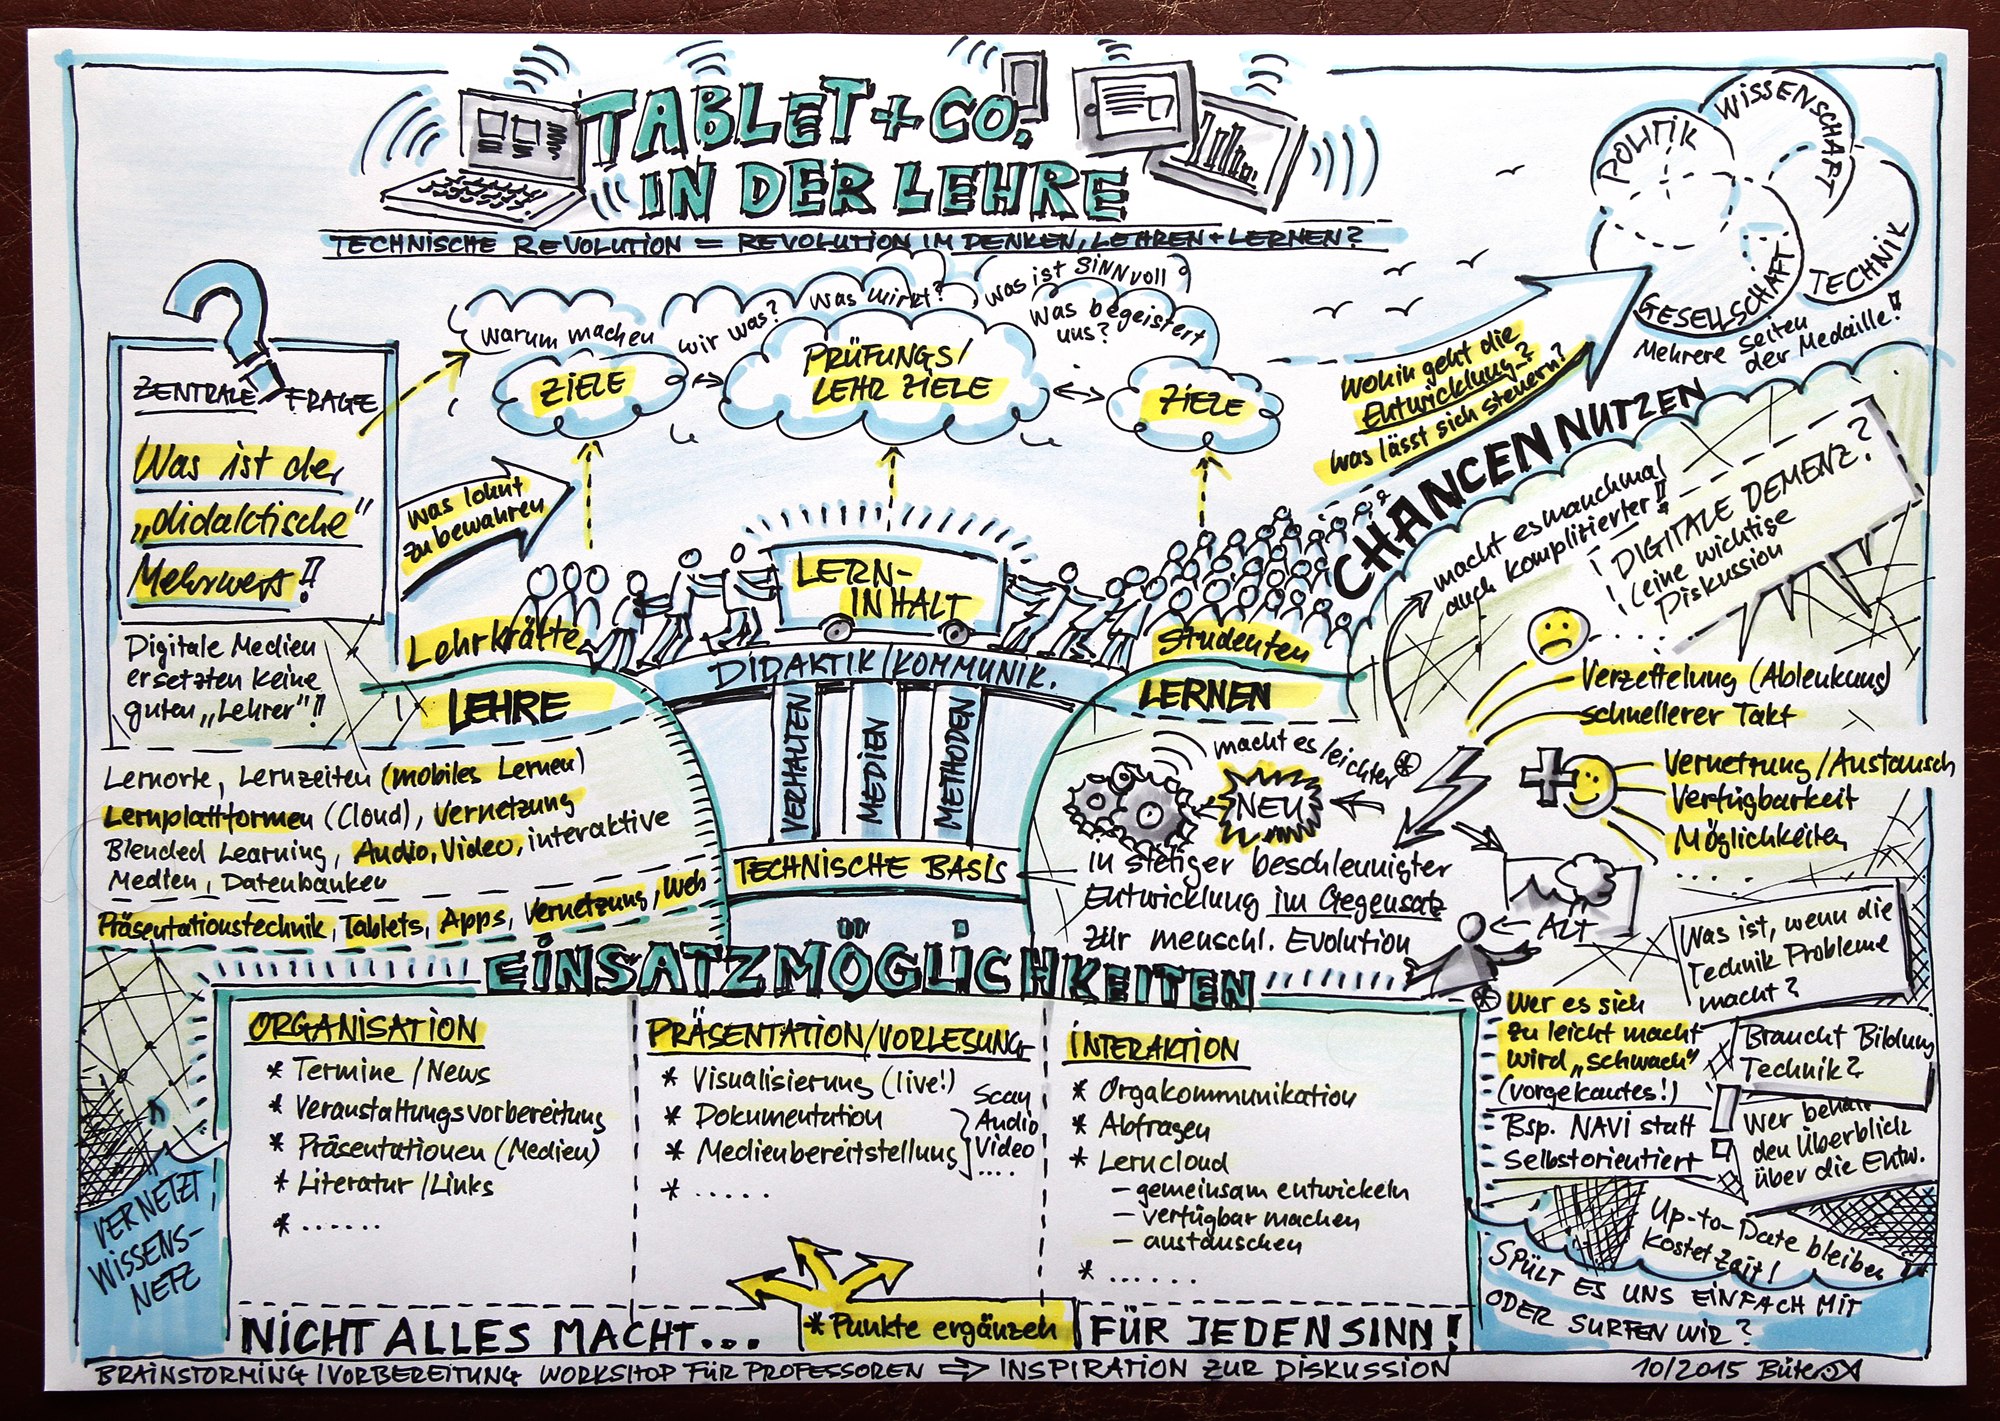 TABLET + CO.
IN DER LEHRE
TECHNISCHE REVOLUTION = REVOLUTION IM DENKEN, LEHREN + LERNEN?
POLITIK
WISSENSCHAFT
GESELLSCHAFT
TECHNIK
Mehrere Seiten
der Medaille!!
ZENTRALE FRAGE
Was ist der
„didaktische"
Mehrwert!!
Digitale Medien
ersetzten keine
guten „Lehrer"!!
warum machen wir was?
was wirkt?
was ist SINNvoll
was begeistert
uns?
ZIELE
PRÜFUNGS/
LEHR ZIELE
ZIELE
Was lohnt
zu bewahren
Wohin geht die
Entwicklung?
was lässt sich steuern?
CHANCEN NUTZEN
macht es manchmal
auch komplizierter!!
DIGITALE DEMENZ?
(eine wichtige
Diskussion
LERN-
INHALT
Lehrkräfte
Studenten
DIDAKTIK/KOMMUNIK.
VERHALTEN
MEDIEN
METHODEN
TECHNISCHE BASIS
LEHRE
Lernorte, Lernzeiten (mobiles Lernen)
Lernplattformen (Cloud), Vernetzung
Blended Learning, Audio, Video, interaktive
Medien, Datenbanken
Präsentationstechnik, Tablets, Apps, Vernetzung, Web
LERNEN
macht es leichter *
NEU
in stetiger beschleunigter
Entwicklung im Gegensatz
zur menschl. Evolution
ALT
Verzettelung (Ablenkung)
schnellerer Takt
+
Vernetzung/Austausch
Verfügbarkeit
Möglichkeiten
.....
Was ist, wenn die
Technik Probleme
macht?
* Wer es sich
zu leicht macht
wird „schwach"
(vorgekautes!)
Bsp. NAVI statt
Selbstorientiert
Braucht Bildung
Technik?
Wer behält
den Überblick
über die Entw.
Up-to-Date bleiben
kostet Zeit!
SPÜLT ES UNS EINFACH MIT
ODER SURFEN WIR?
EINSATZMÖGLICHKEITEN
ORGANISATION
* Termine/News
* Veranstaltungsvorbereitung
* Präsentationen (Medien)
* Literatur/Links
* ......
PRÄSENTATION/VORLESUNG
* Visualisierung (live!)
* Dokumentation
* Medienbereitstellung
* .....
Scan
Audio
Video
....
INTERAKTION
* Orgakommunikation
* Abfragen
* Lerncloud
- gemeinsam entwickeln
- verfügbar machen
- austauschen
* ......
VERNETZT,
WISSENS-
NETZ
NICHT ALLES MACHT...
* Punkte ergänzen
FÜR JEDEN SINN!
BRAINSTORMING/VORBEREITUNG WORKSHOP FÜR PROFESSOREN ⇒ INSPIRATION ZUR DISKUSSION
10/2015